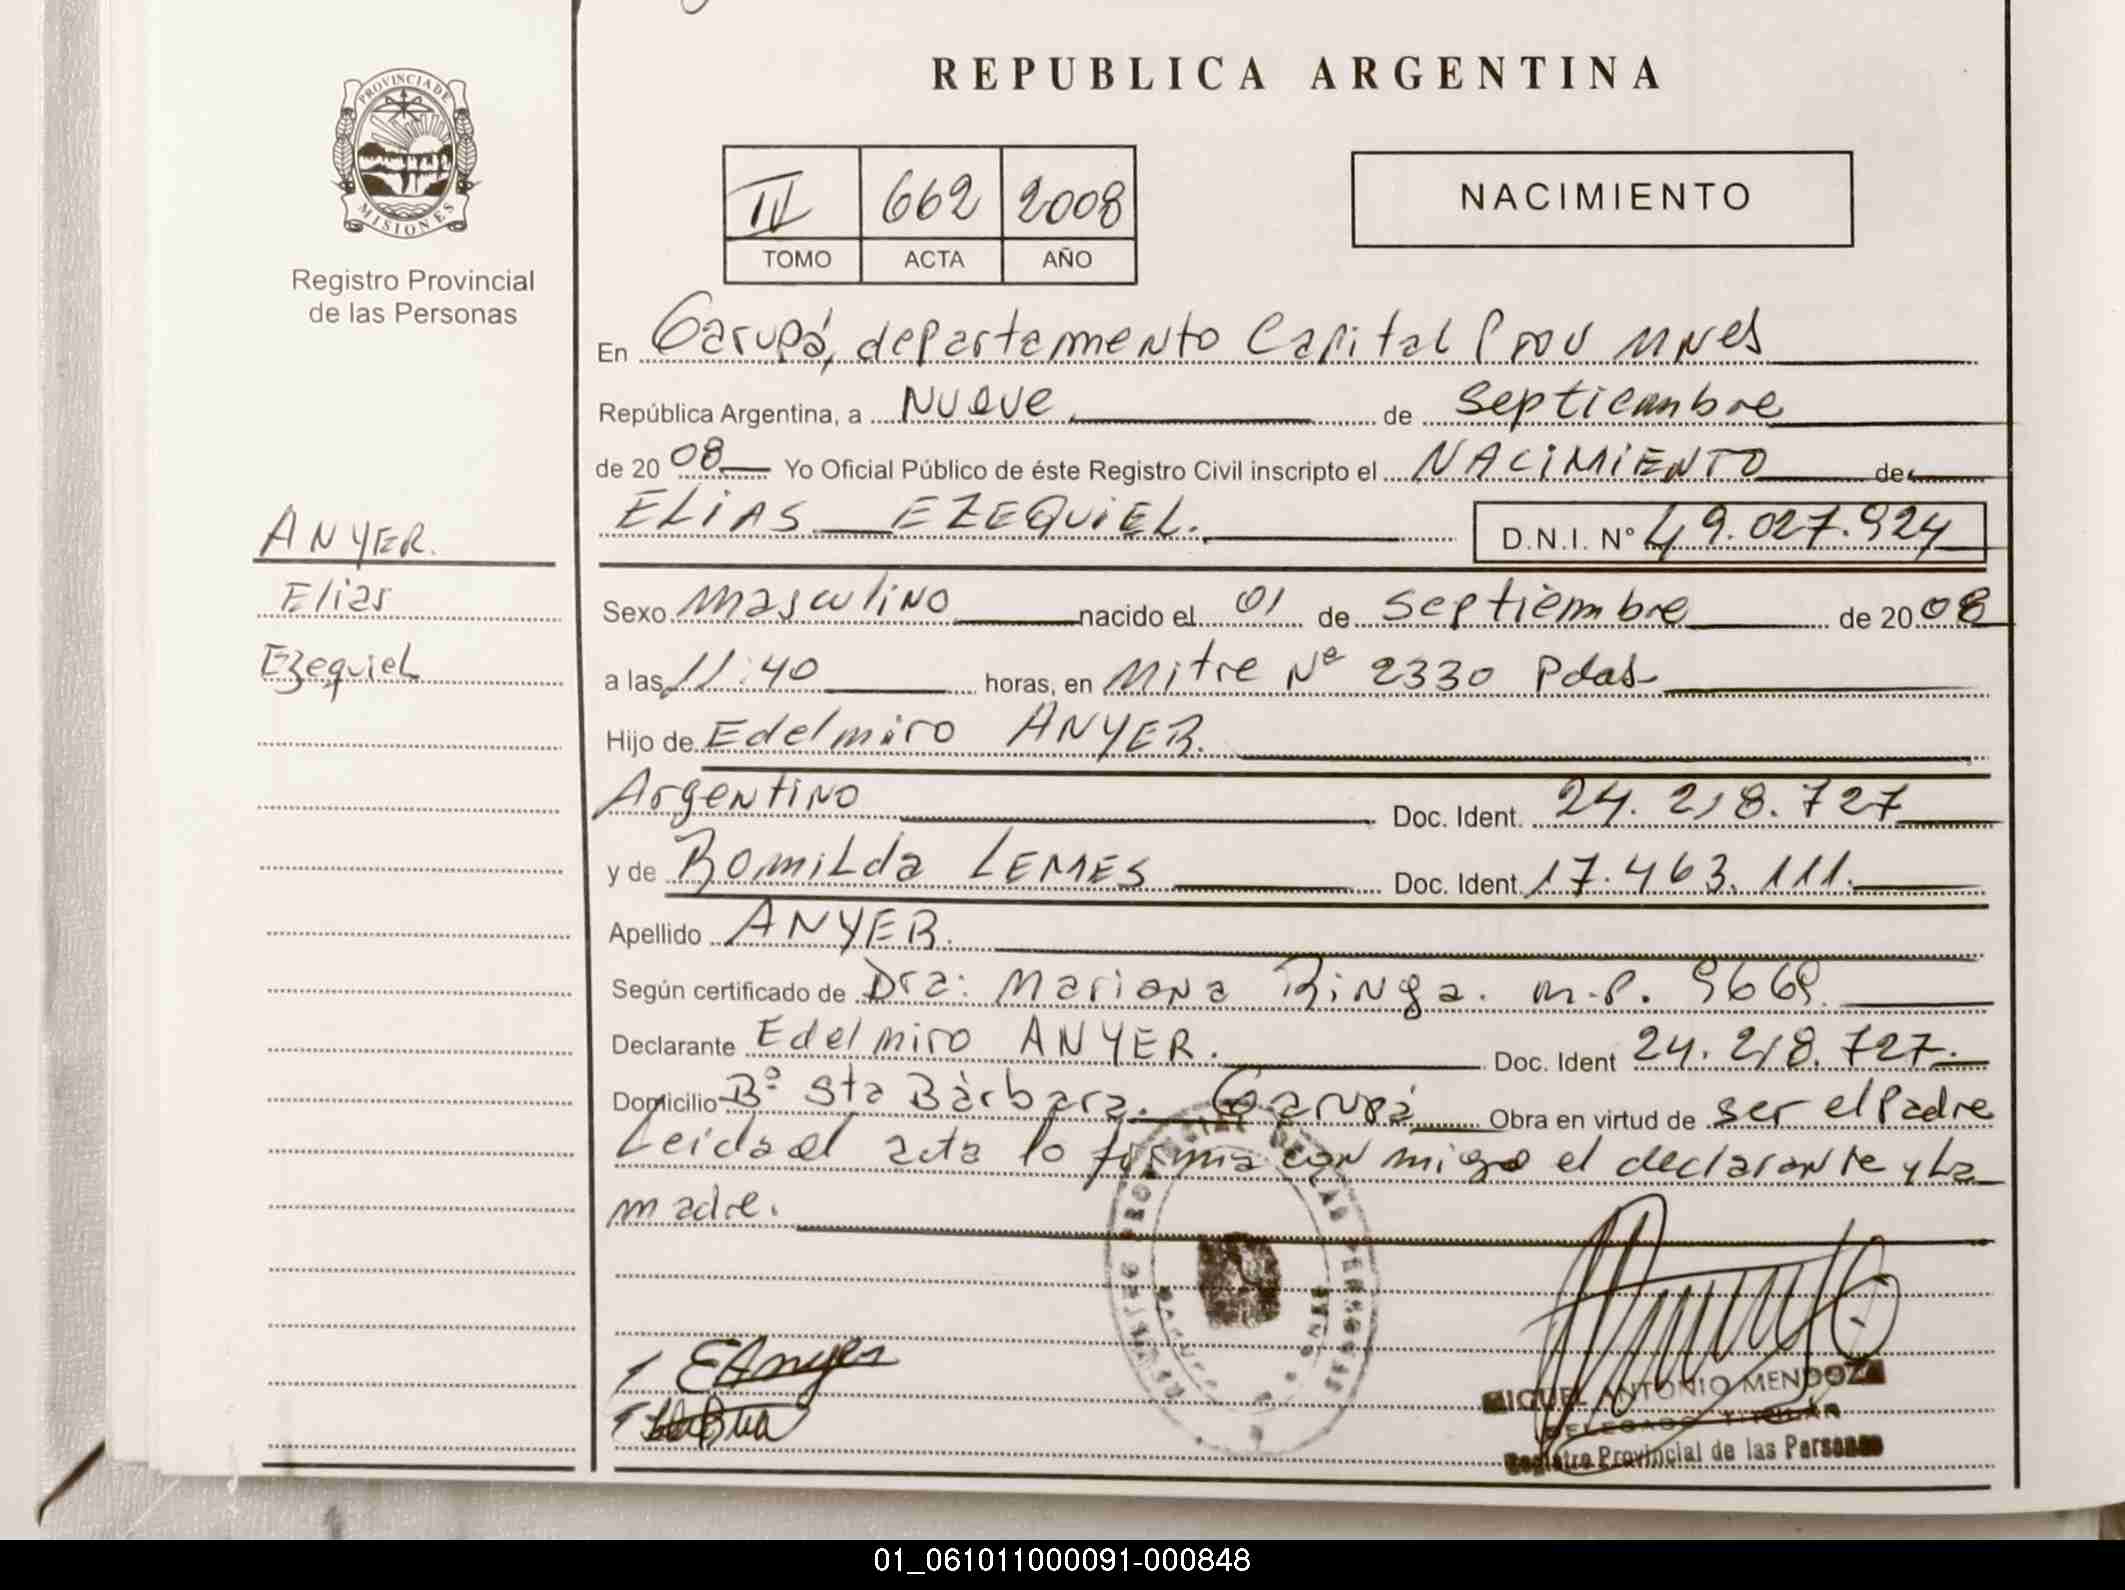 REPUBLICA ARGENTINA
PROVINCIA DE
MISIONES
Registro Provincial
de las Personas
III 662 2008
TOMO ACTA AÑO
NACIMIENTO
En Garupá, departamento Capital Prov MNes
República Argentina, a Nueve de septiembre
de 20 08 Yo Oficial Público de éste Registro Civil inscripto el NACIMIENTO de
ELIAS EZEQUIEL. D.N.I. N° 49.027.924
ANYER.
Elias
Ezequiel
Sexo masculino nacido el 01 de septiembre de 20 08
a las 11:40 horas, en Mitre Nº 2330 Pdas
Hijo de Edelmiro ANYER.
Argentino Doc. Ident. 24.218.727
y de Romilda LEMES Doc. Ident. 17.463.111.
Apellido ANYER.
Según certificado de Dra: Mariana Ringa. m.p. 9669.
Declarante Edelmiro ANYER. Doc. Ident 24.218.727.
Domicilio Bº Sta Bàrbara. Garupá Obra en virtud de ser el Padre
Leida el acta lo firma con migo el declarante y La
madre.
EAnyer
MIGUEL ANTONIO MENDOZA
DELEGADO TITULAR
Registro Provincial de las Personas
01_061011000091-000848